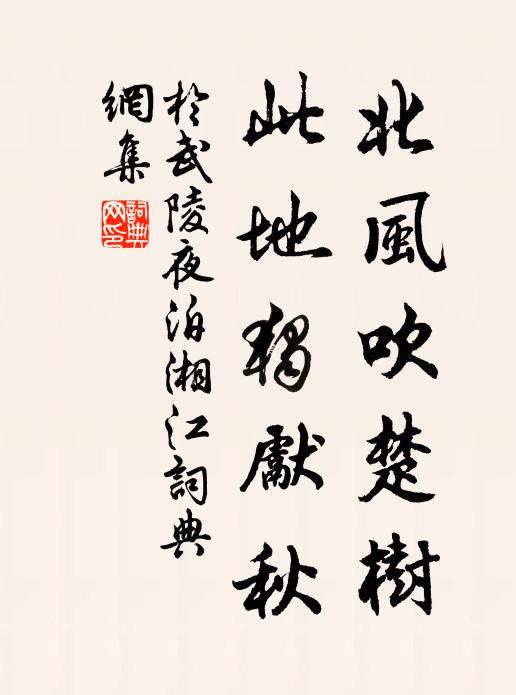 北風吹楚樹
此地獨獻秋
於武陵夜泊湘江詞典
網集
詞典網印